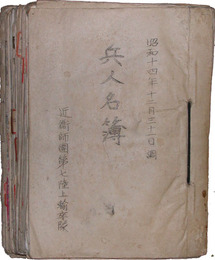 昭和十四年十二月三十一日調
兵人名簿
近衛師團第七陸上輸卒隊